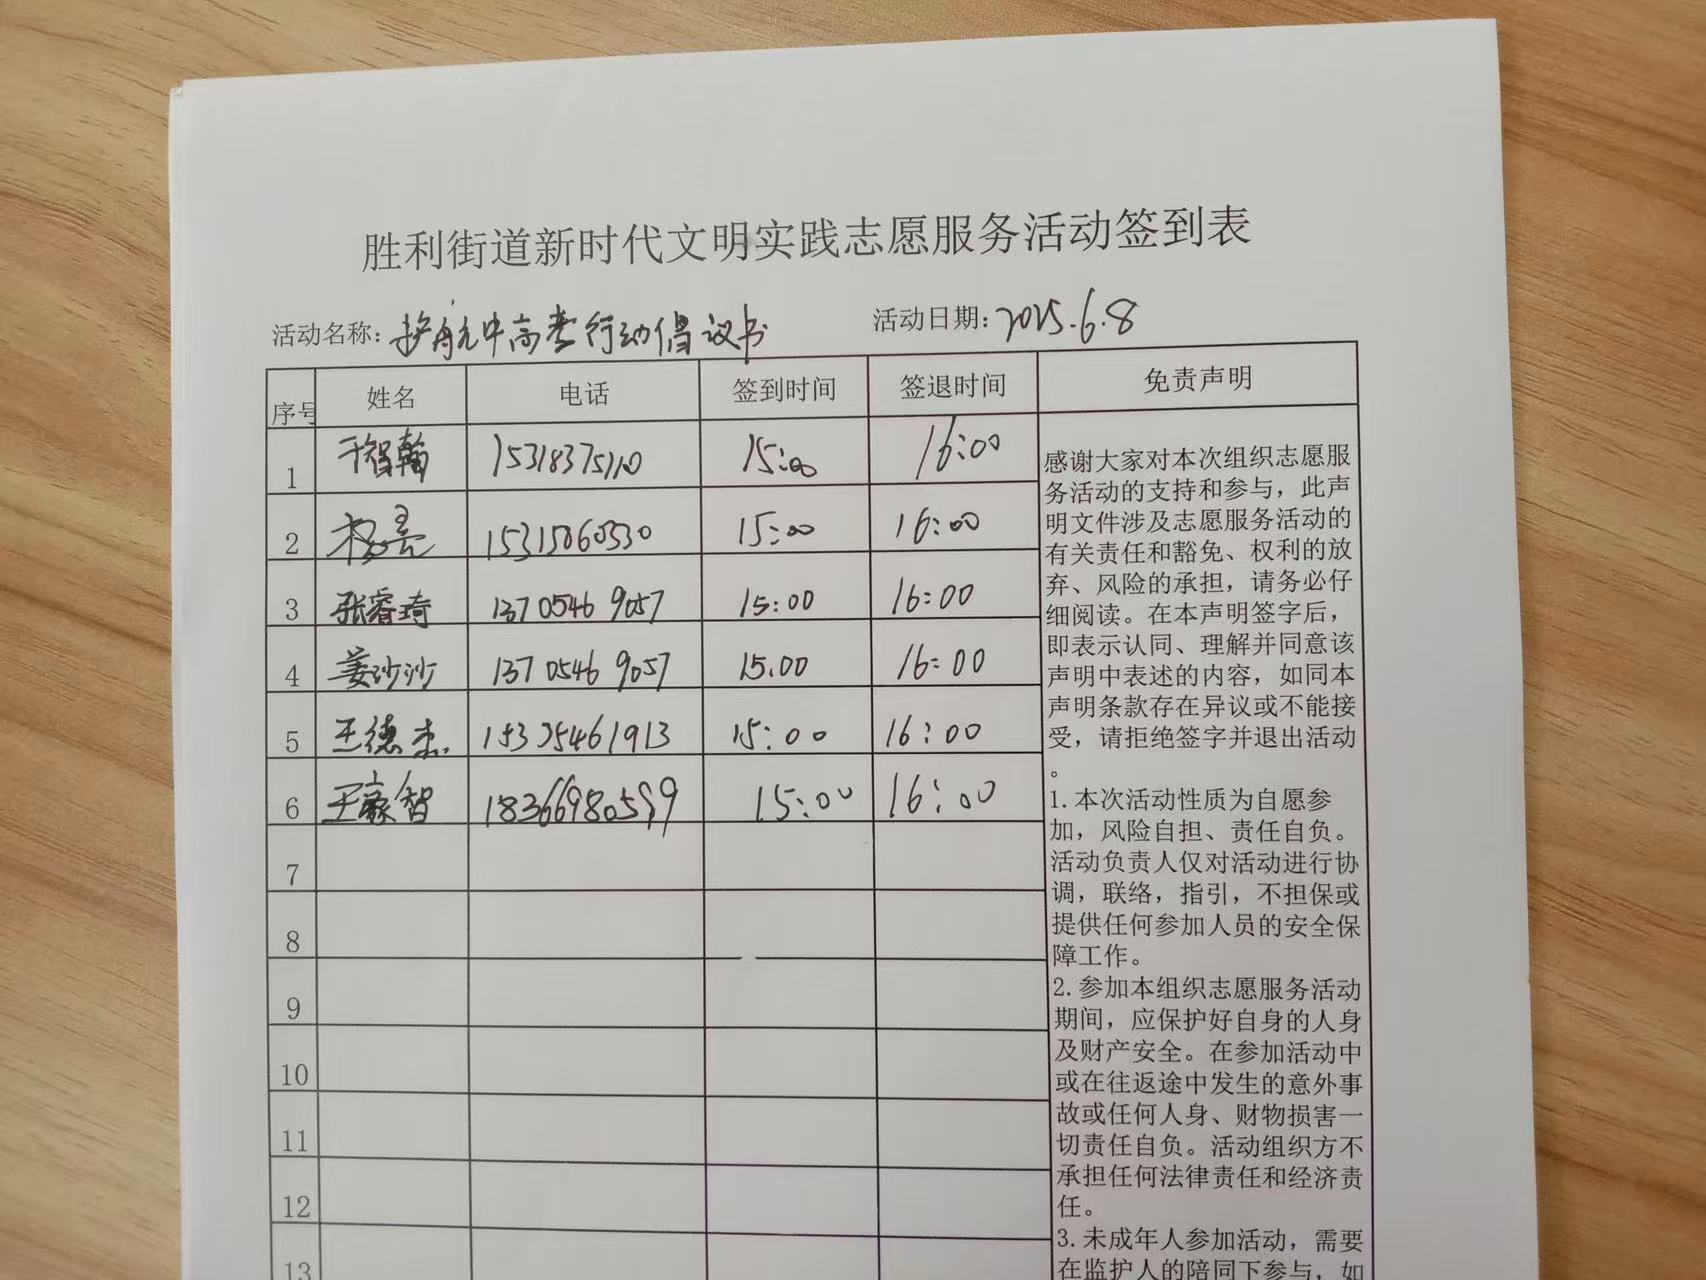 胜利街道新时代文明实践志愿服务活动签到表
活动名称: 护航中高考行动倡议书 活动日期: 2025.6.8
序号 姓名 电话 签到时间 签退时间 免责声明
1 于智瀚 15318375110 15:00 16:00
2 杨亮 15315060530 15:00 16:00
3 张睿琦 13705469057 15:00 16:00
4 姜沙沙 13705469057 15.00 16:00
5 王德杰 15325461913 15:00 16:00
6 王豪智 18366980599 15:00 16:00
7
8
9
10
11
12
13
感谢大家对本次组织志愿服
务活动的支持和参与，此声
明文件涉及志愿服务活动的
有关责任和豁免、权利的放
弃、风险的承担，请务必仔
细阅读。在本声明签字后，
即表示认同、理解并同意该
声明中表述的内容，如同本
声明条款存在异议或不能接
受，请拒绝签字并退出活动
。
1.本次活动性质为自愿参
加，风险自担、责任自负。
活动负责人仅对活动进行协
调，联络，指引，不担保或
提供任何参加人员的安全保
障工作。
2.参加本组织志愿服务活动
期间，应保护好自身的人身
及财产安全。在参加活动中
或在往返途中发生的意外事
故或任何人身、财物损害一
切责任自负。活动组织方不
承担任何法律责任和经济责
任。
3.未成年人参加活动，需要
在监护人的陪同下参与，如